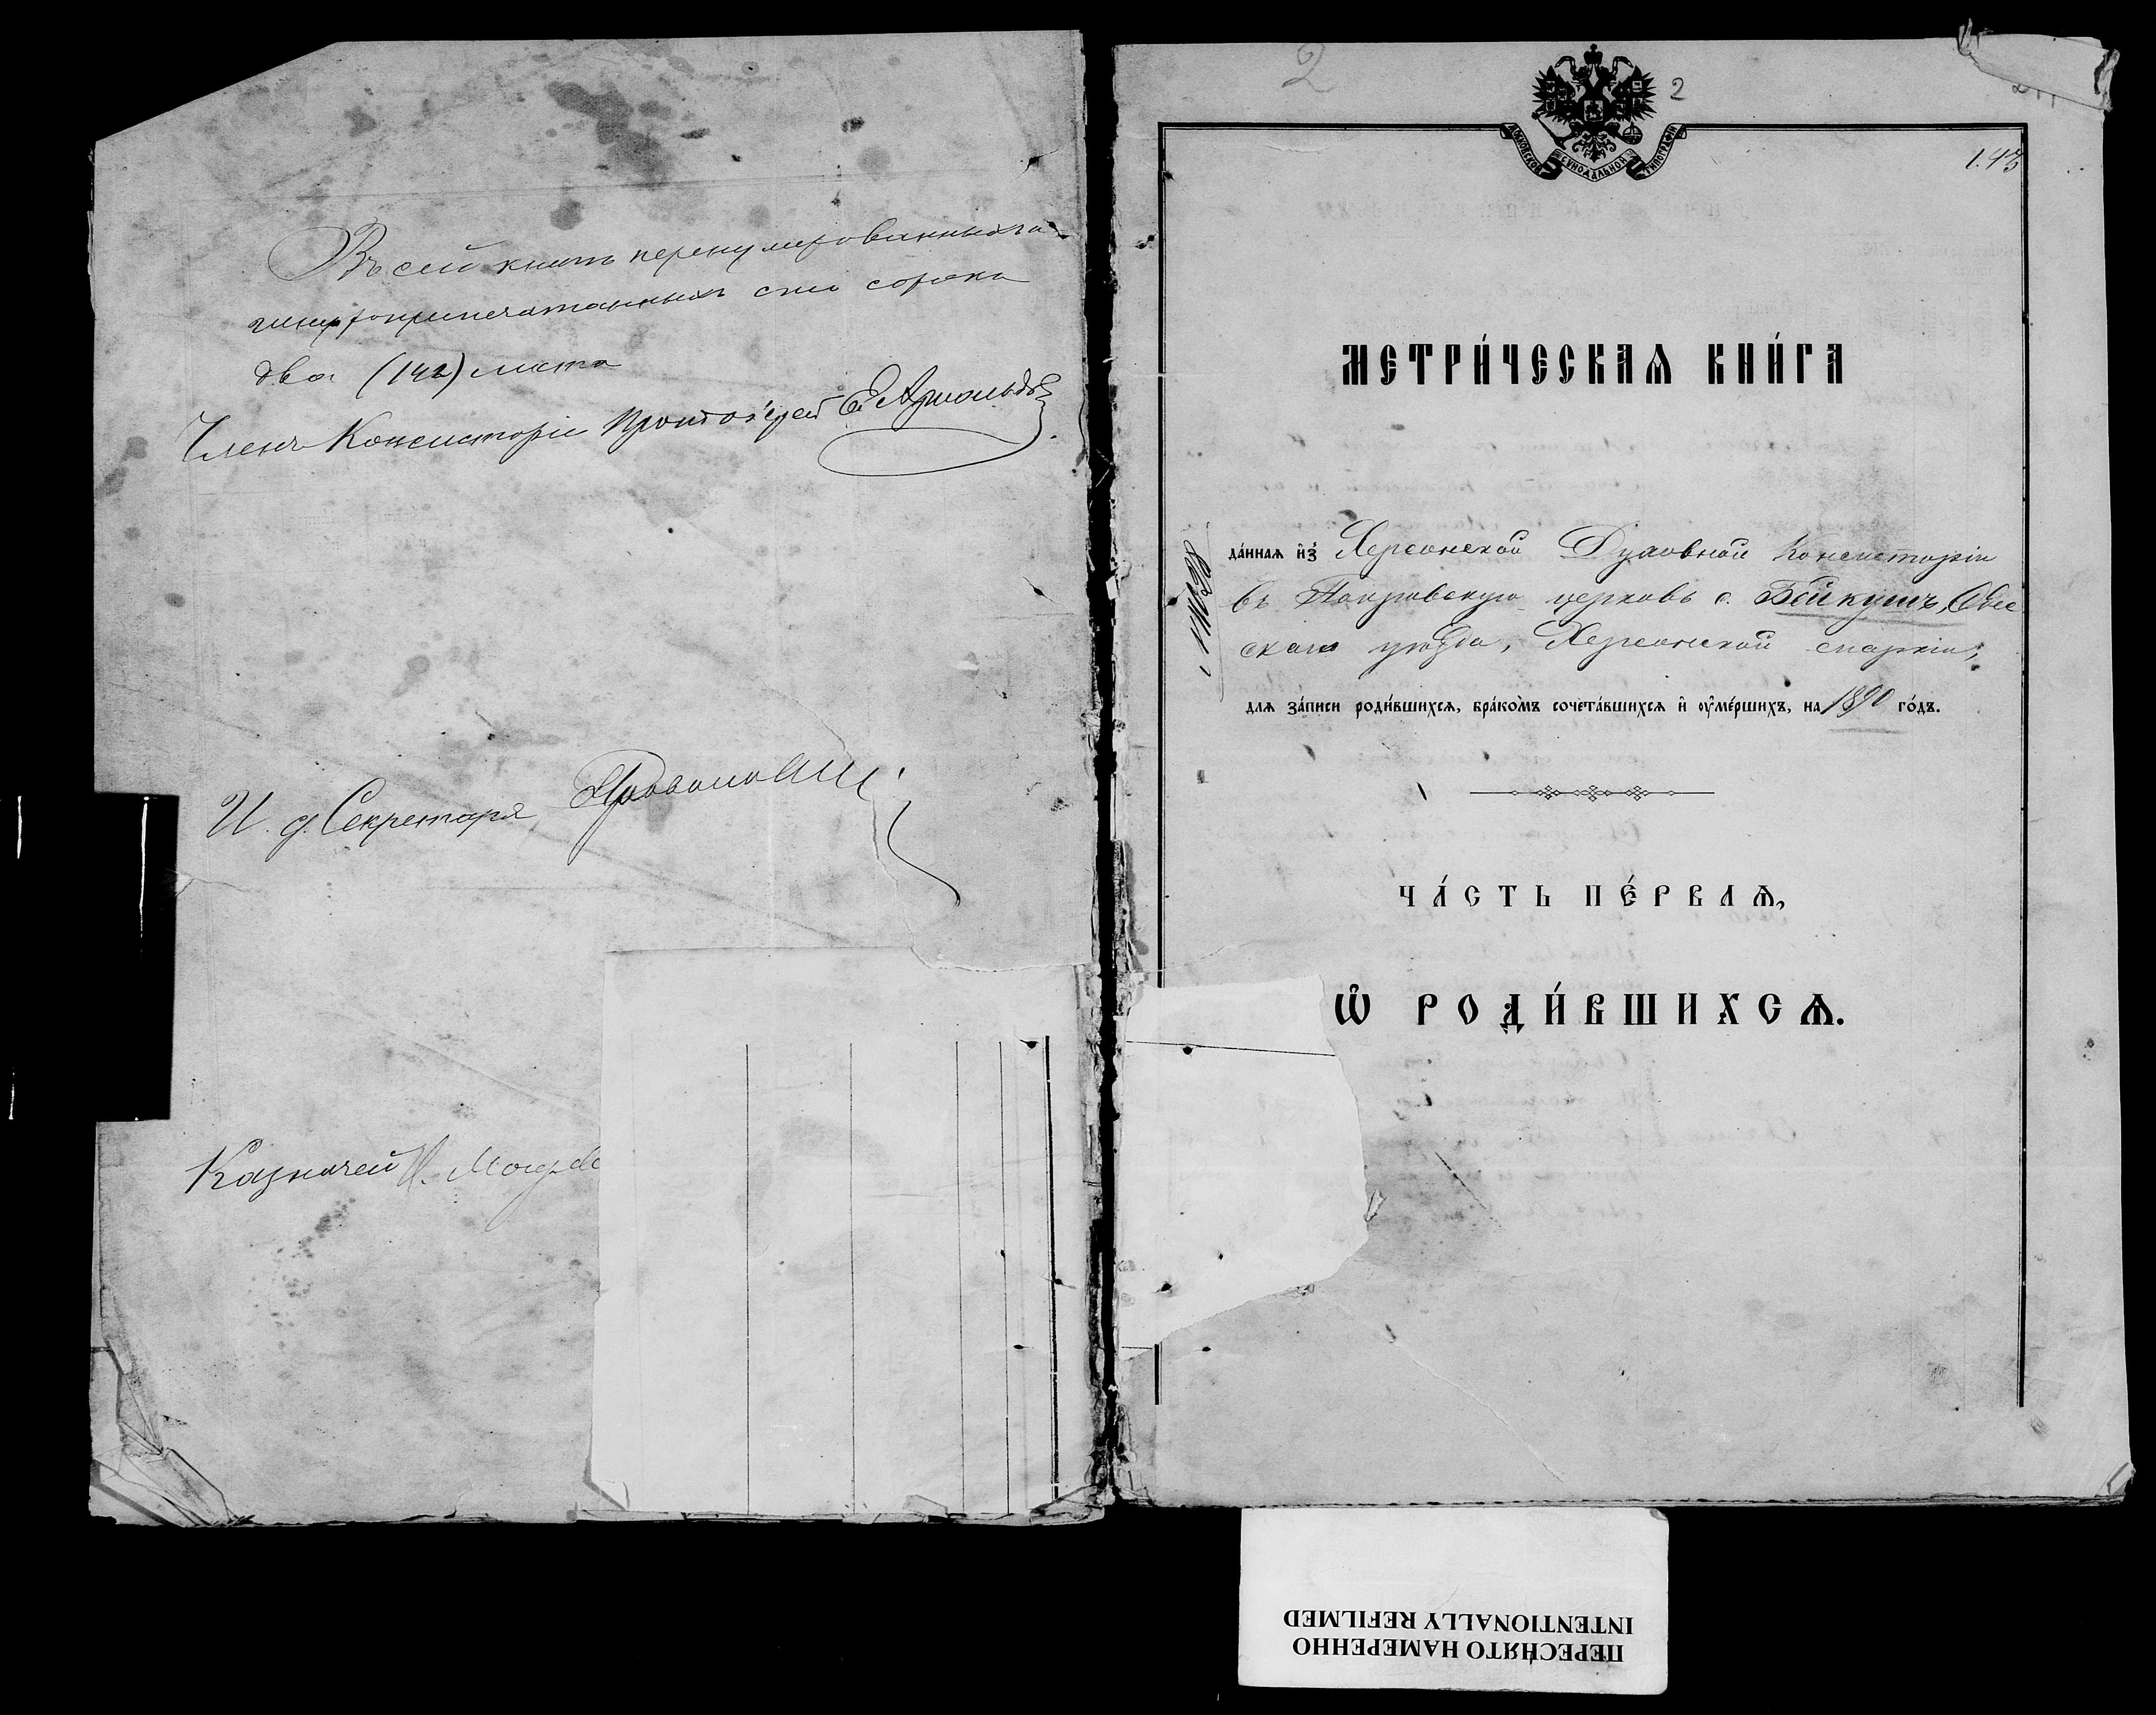 Въ сей книгѣ перенумерованныхъ и
шнуроприпечатанныхъ сто сорокъ
два (142) листа
Членъ Консисторіи Протоіерей
И. д. Секретаря
Казначей
2
2
МОСКОВСКОЙ СУНОДАЛЬНОЙ ТИПОГРАФІИ
143
МЕТРИ́ЧЕСКАѦ КНИ́ГА
да́ннаѧ и҆з̾ Херсонской Духовной Консисторіи
въ Покровскую церковь с. Бейкушъ, Одес
скаго уѣзда, Херсонской епархіи,
длѧ за́писи роди́вшихсѧ, бра́комъ сочета́вшихсѧ и҆ ᲂу҆ме́ршихъ, на 1890 го́дъ.
ЧА́СТЬ ПЕ́РВАѦ,
Ѽ РОДИ́ВШИХСѦ.
ПЕРЕСНЯТО НАМЕРЕННО
INTENTIONALLY REFILMED